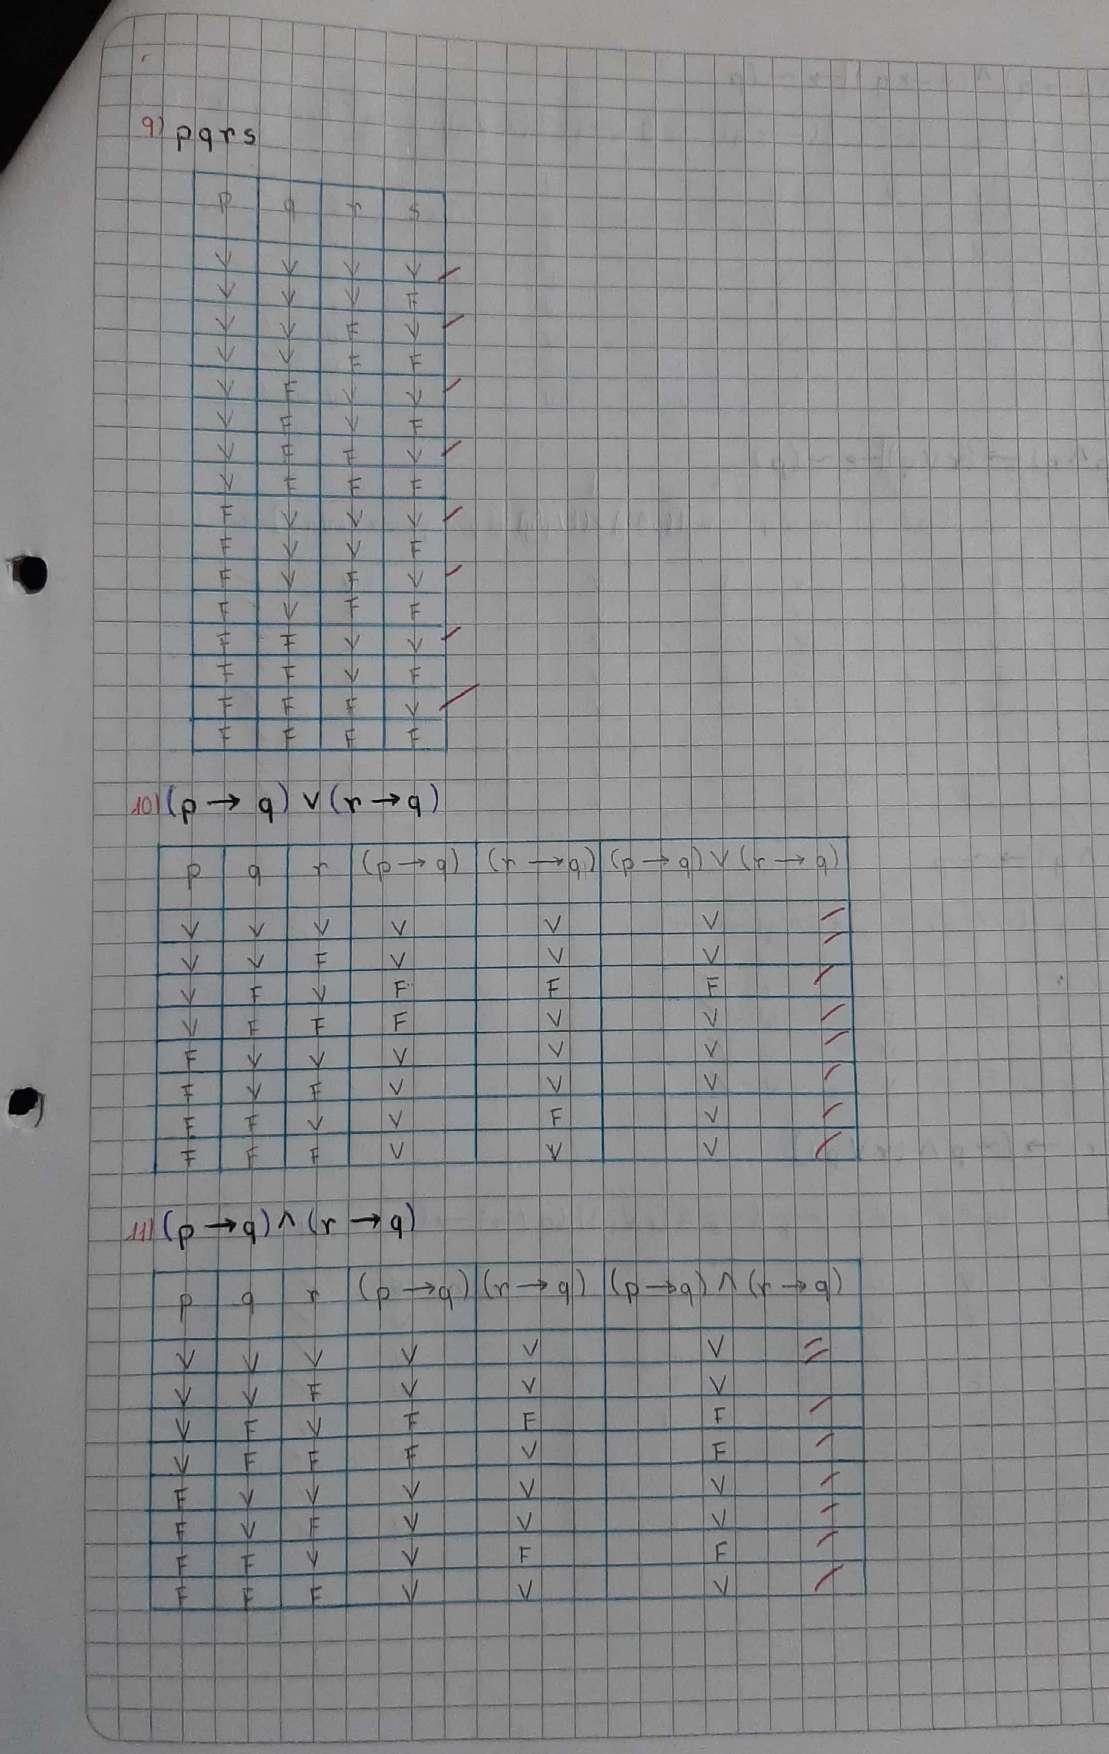 9) pqrs
p q r s
V V V V
V V V F
V V F V
V V F F
V F V V
V F V F
V F F V
V F F F
F V V V
F V V F
F V F V
F V F F
F F V V
F F V F
F F F V
F F F F
10) (p → q) ∨ (r → q)
p q r (p → q) (r → q) (p → q) ∨ (r → q)
V V V V V V
V V F V V V
V F V F F F
V F F F V V
F V V V V V
F V F V V V
F F V V F V
F F F V V V
11) (p → q) ∧ (r → q)
p q r (p → q) (r → q) (p → q) ∧ (r → q)
V V V V V V
V V F V V V
V F V F F F
V F F F V F
F V V V V V
F V F V V V
F F V V F F
F F F V V V